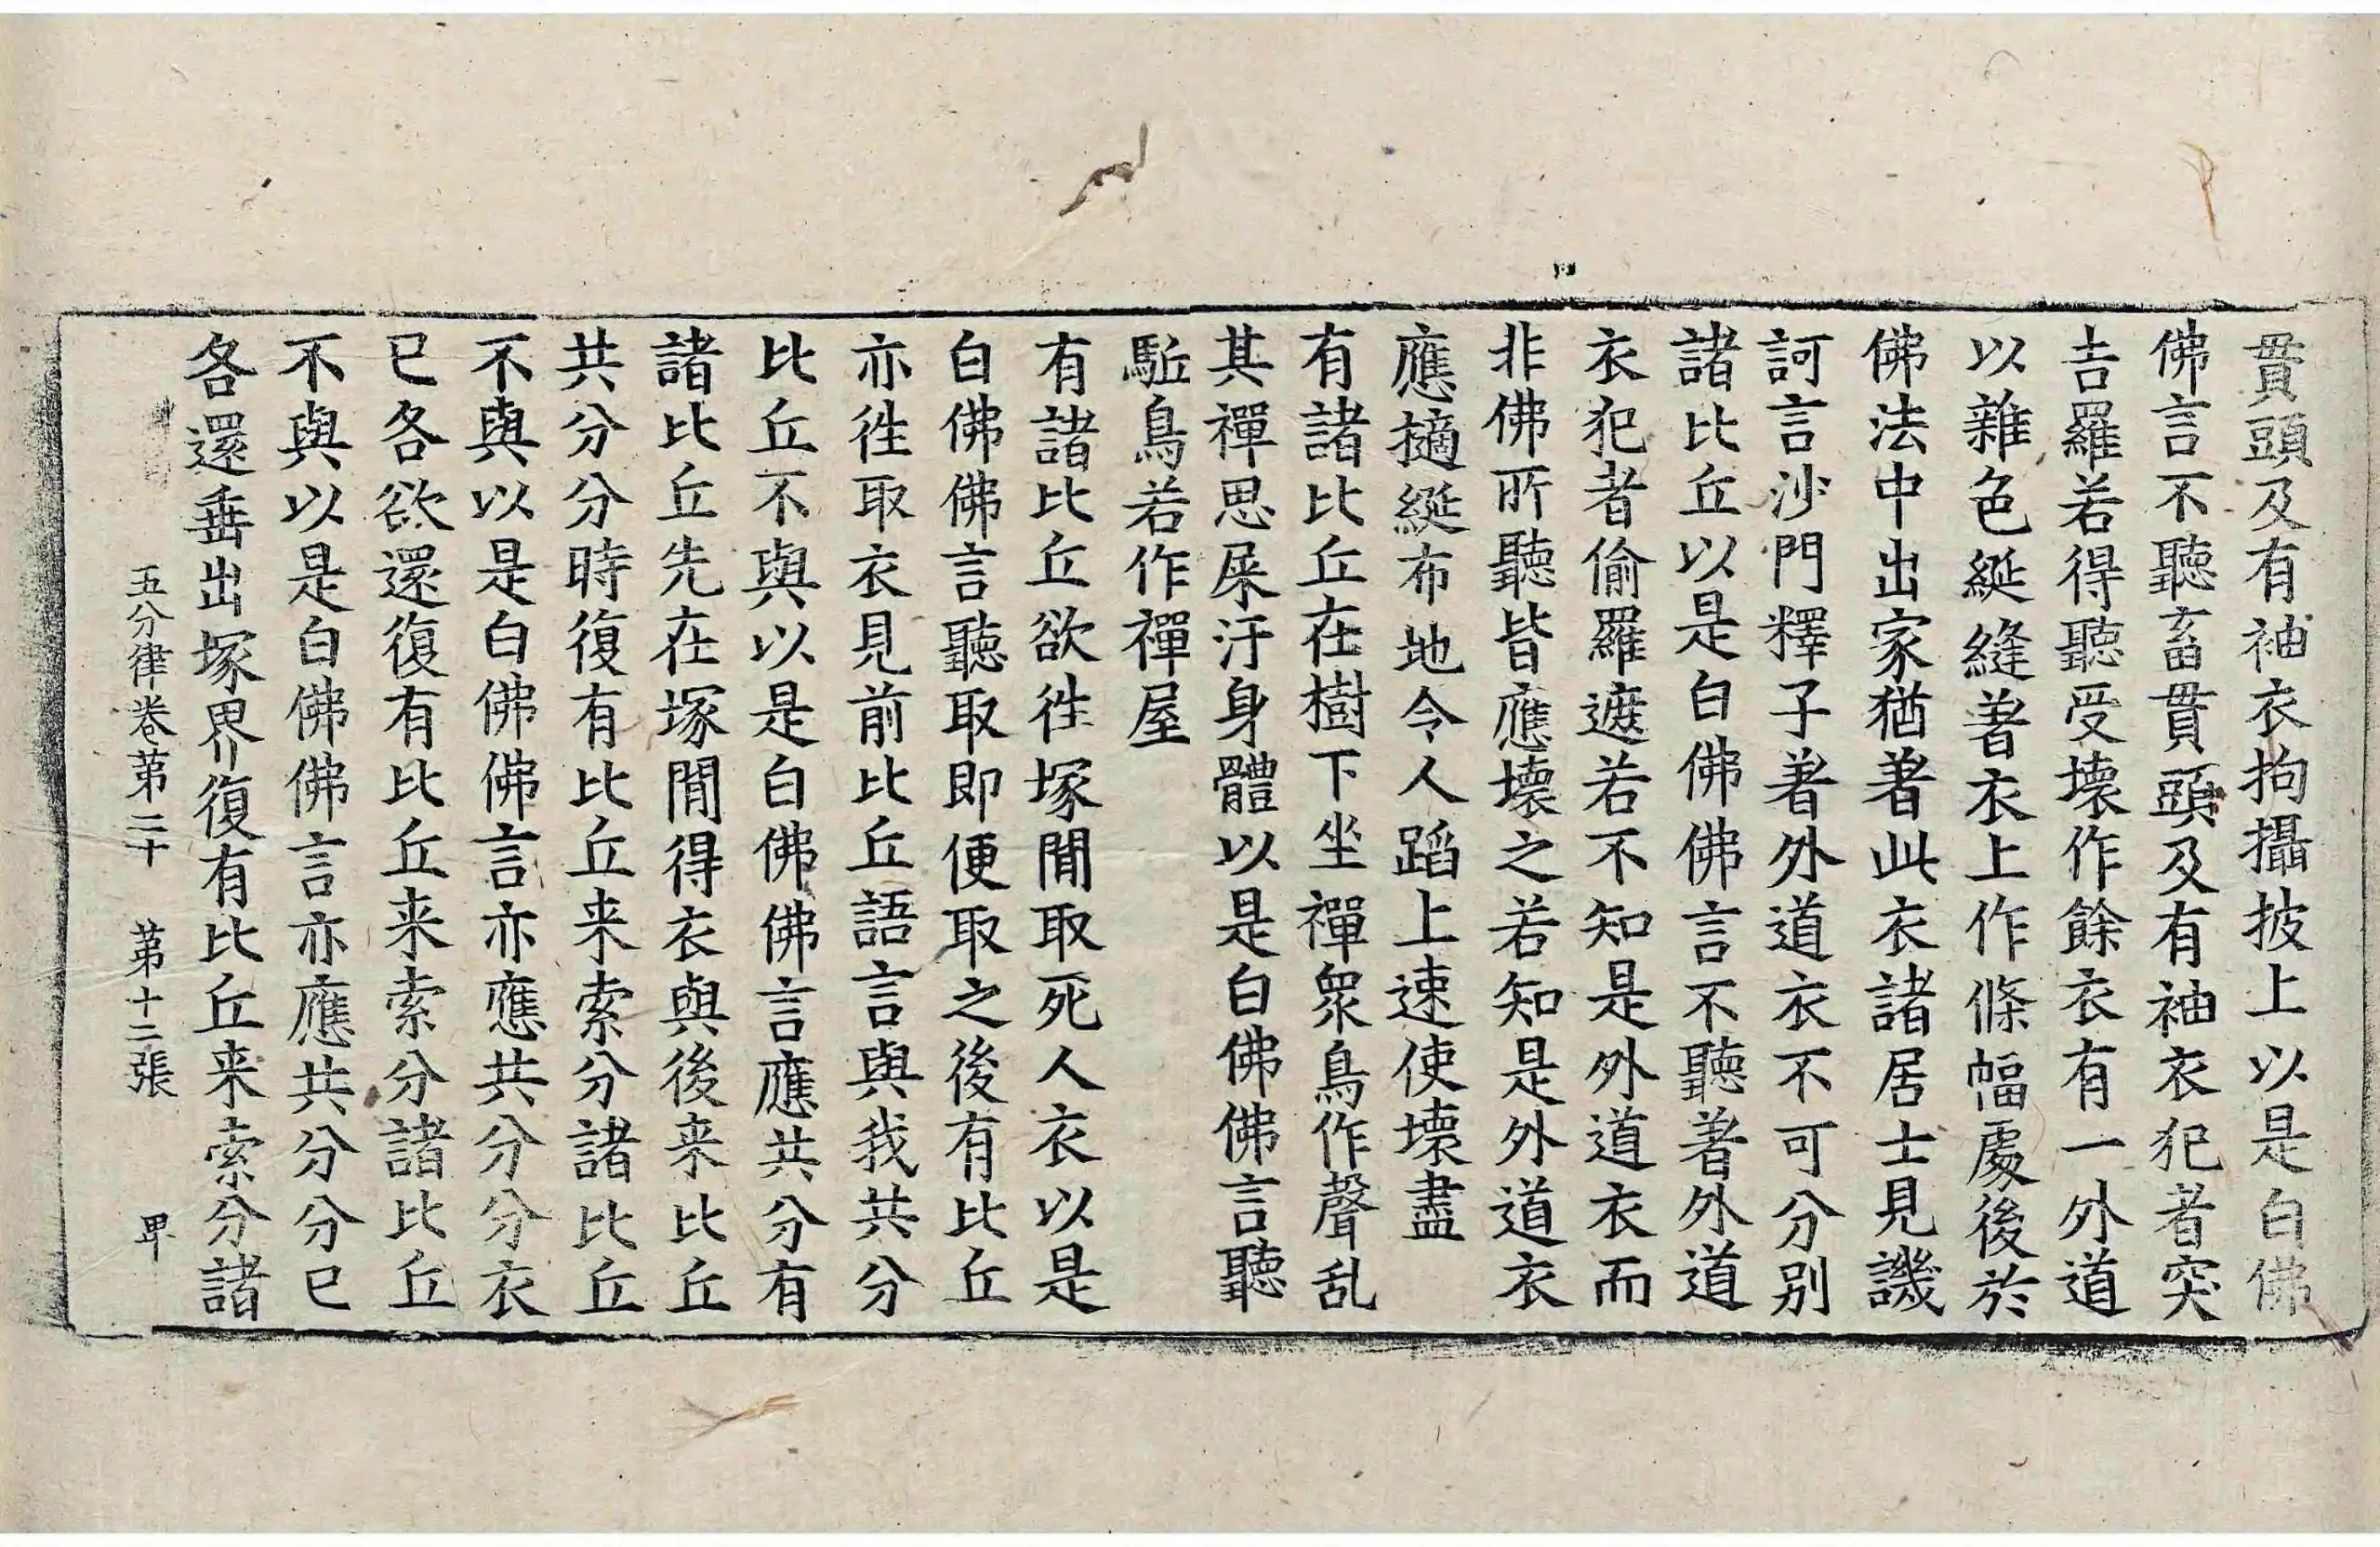 貫頭及有袖衣拘攝披上以是白佛
佛言不聽畜貫頭及有袖衣犯者突
吉羅若得聽受壞作餘衣有一外道
以雜色綖縫著衣上作條幅處後於
佛法中出家猶著此衣諸居士見譏
訶言沙門釋子著外道衣不可分別
諸比丘以是白佛佛言不聽著外道
衣犯者偷羅遮若不知是外道衣而
非佛所聽皆應壞之若知是外道衣
應擿綖布地令人蹈上速使壞盡
有諸比丘在樹下坐禪眾鳥作聲亂
其禪思屎汙身體以是白佛佛言聽
駈鳥若作禪屋
有諸比丘欲往塚間取死人衣以是
白佛佛言聽取即便取之後有比丘
亦往取衣見前比丘語言與我共分
比丘不與以是白佛佛言應共分有
諸比丘先在塚間得衣與後来比丘
共分分時復有比丘来索分諸比丘
不與以是白佛佛言亦應共分分衣
已各欲還復有比丘来索分諸比丘
不與以是白佛佛言亦應共分分已
各還垂出塚界復有比丘来索分諸
五分律卷第二十 第十二張 甲